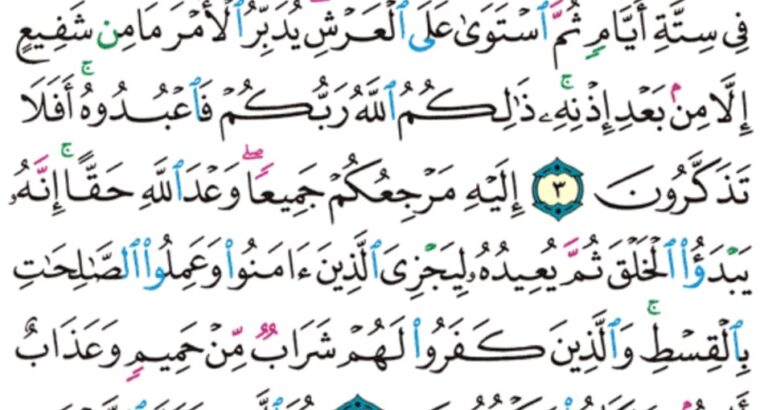 فِى سِتَّةِ أَيَّامٍ ثُمَّ ٱسْتَوَىٰ عَلَى ٱلْعَرْشِ يُدَبِّرُ ٱلْأَمْرَ مَا مِن شَفِيعٍ
إِلَّا مِنۢ بَعْدِ إِذْنِهِۦ ۚ ذَٰلِكُمُ ٱللَّهُ رَبُّكُمْ فَٱعْبُدُوهُ ۚ أَفَلَا
تَذَكَّرُونَ ٣ إِلَيْهِ مَرْجِعُكُمْ جَمِيعًا ۖ وَعْدَ ٱللَّهِ حَقًّا ۚ إِنَّهُۥ
يَبْدَؤُا۟ ٱلْخَلْقَ ثُمَّ يُعِيدُهُۥ لِيَجْزِىَ ٱلَّذِينَ ءَامَنُوا۟ وَعَمِلُوا۟ ٱلصَّـٰلِحَـٰتِ
بِٱلْقِسْطِ ۚ وَٱلَّذِينَ كَفَرُوا۟ لَهُمْ شَرَابٌ مِّنْ حَمِيمٍ وَعَذَابٌ